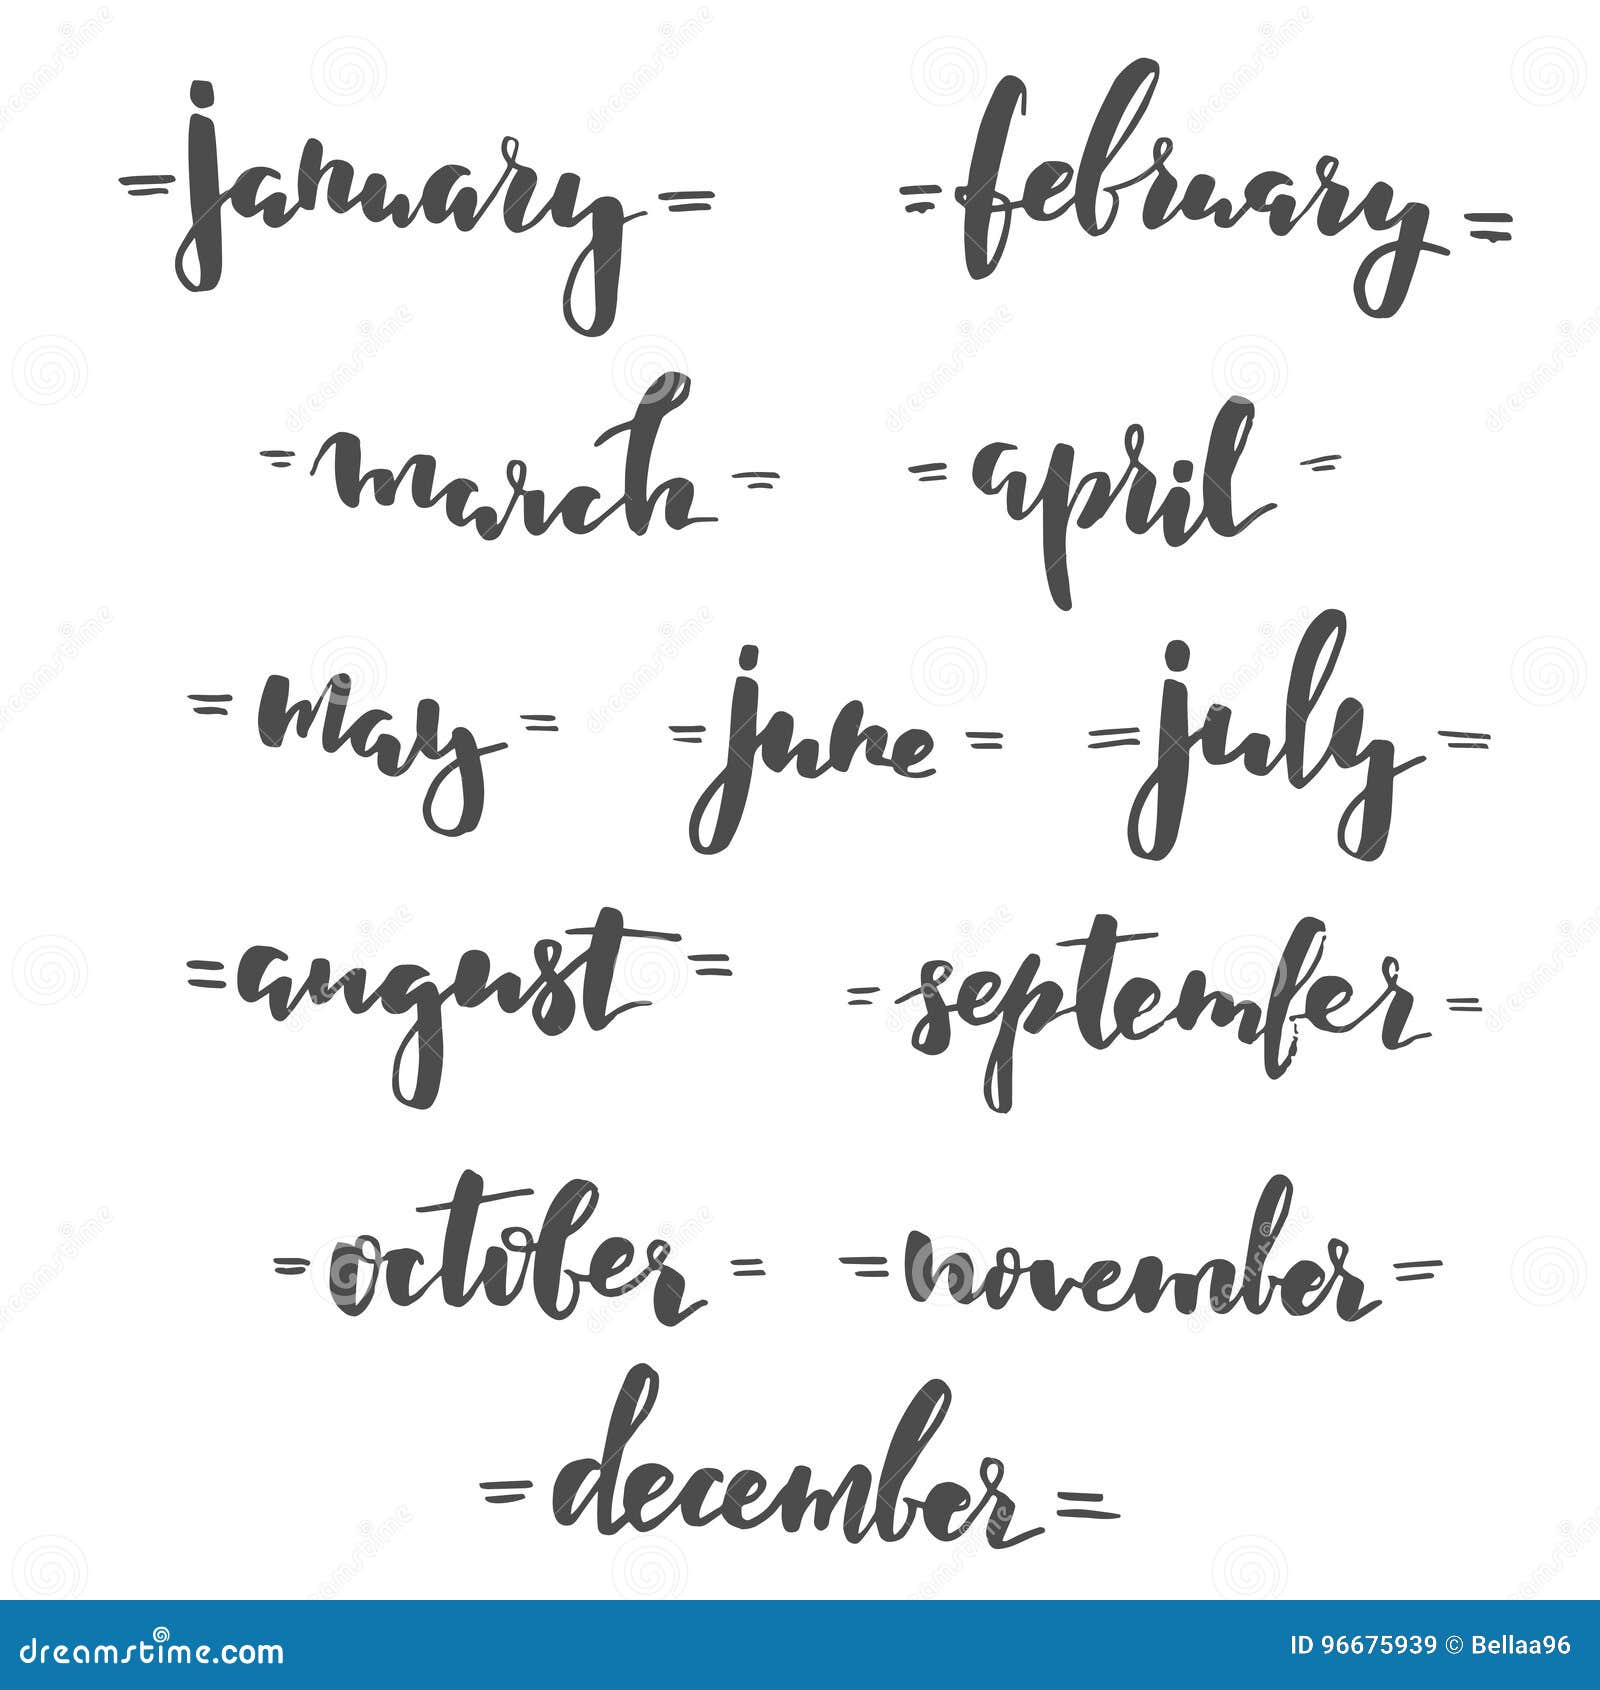 = january =
= february =
= march =
= april =
= may =
= june =
= july =
= august =
= september =
= october =
= november =
= december =
dreamstime.com
ID 96675939 © Bellaa96